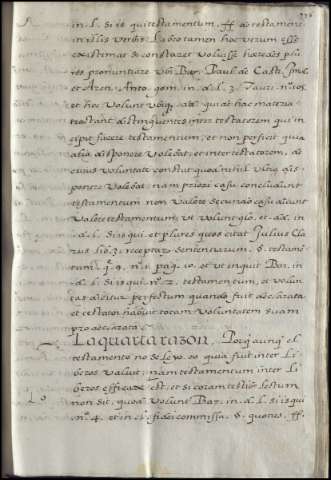 in. l. si is qui testamentum. ff. de testament.
in illis verbis. Labeo tamen hoc verum esse
existimat si constaret voluisse heredes plu
res pronuntiare ubi Bar. Paul de Cast.
et Aret. Anto. gom. in. d. l. 3. Taur. n.
et hoc volunt ubiq. dd. qui de hac materia
tractant distinguentes inter testatorem qui in
cipit facere testamentum, et non perficit quia
alia disponere volebat, et inter testatorem, de
cuius voluntate constat quod nihil ultra dis
ponere volebat: nam priori casu concludunt
testamentum non valere secundo casu dicunt
valere testamentum, ut volunt glo. et dd. in
d. l. si is qui et plures quos citat Julius Cla
rus lib. 3. receptar. sententiarum. §. testamen
tum. q. 9. n. 1. pag. 10. et ut inquit Bar. in
d. l. si is qui. n. 2. testamentum, et volun
tas dicitur perfectum quando fuit declarata
et testator habuit totam voluntatem suam
pro declarata
La quarta razon. Porq aunq el
testamento no se leyo. quia fuit inter Li
beros valuit, nam testamentum inter Li
beros efficax est, et si coram testib. lectum
non sit, quod volunt Bar. in. d. l. si is qui
n. 4. et in. l. fidei commissa. §. quoties. ff.